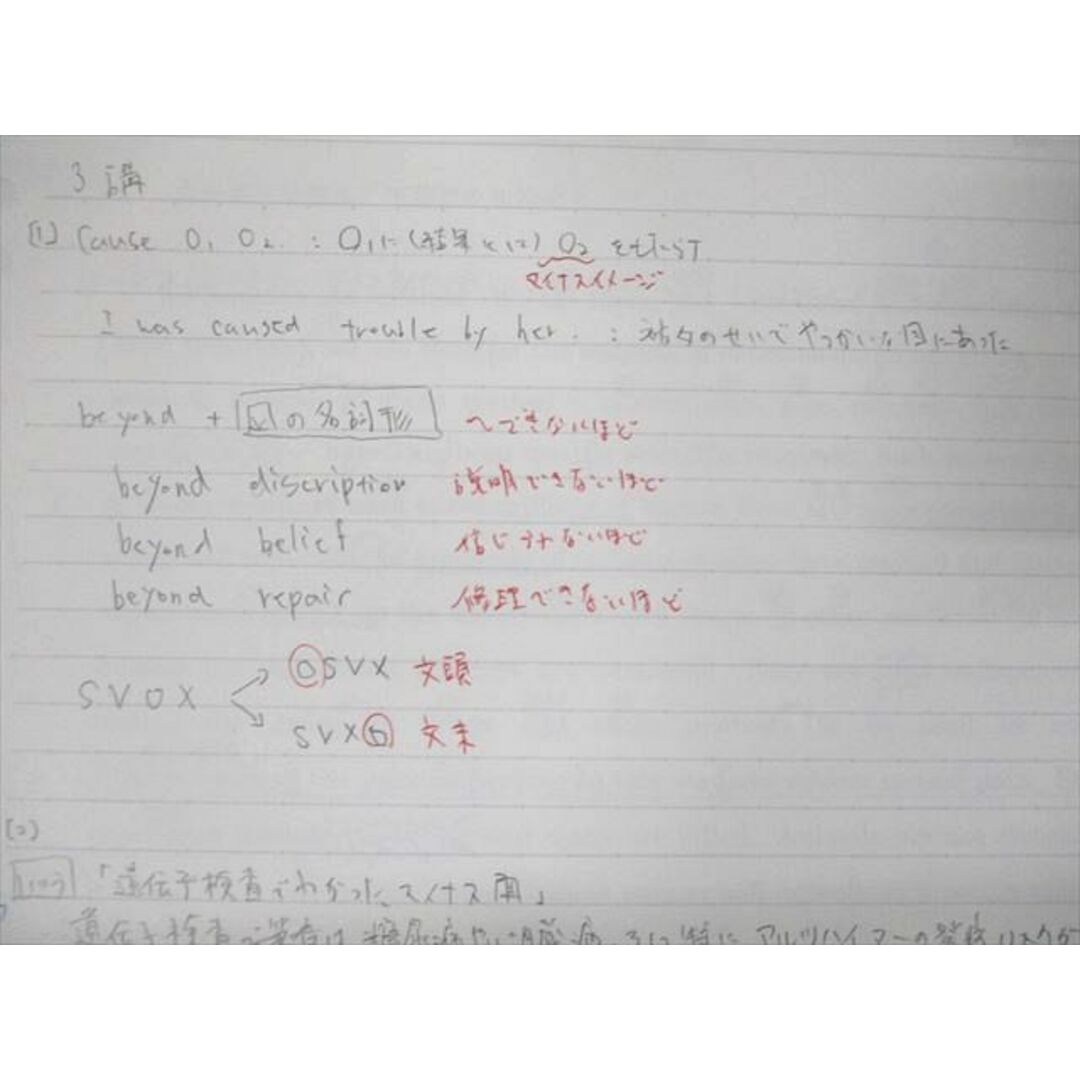 3講
(1) Cause O1 O2 : O1に(結果として) O2 をもたらす
マイナスイメージ
I was caused trouble by her. : 彼女のせいでやっかいな目にあった
beyond + Vの名詞形 〜できないほど
beyond discription 説明できないほど
beyond belief 信じられないほど
beyond repair 修理できないほど
OSVX 文頭
SVOX
SVXO 文末
(2)
「遺伝子検査でわかったマイナス面」
遺伝子検査で筆者は糖尿病や心臓病、そして特にアルツハイマーの発病リスクが